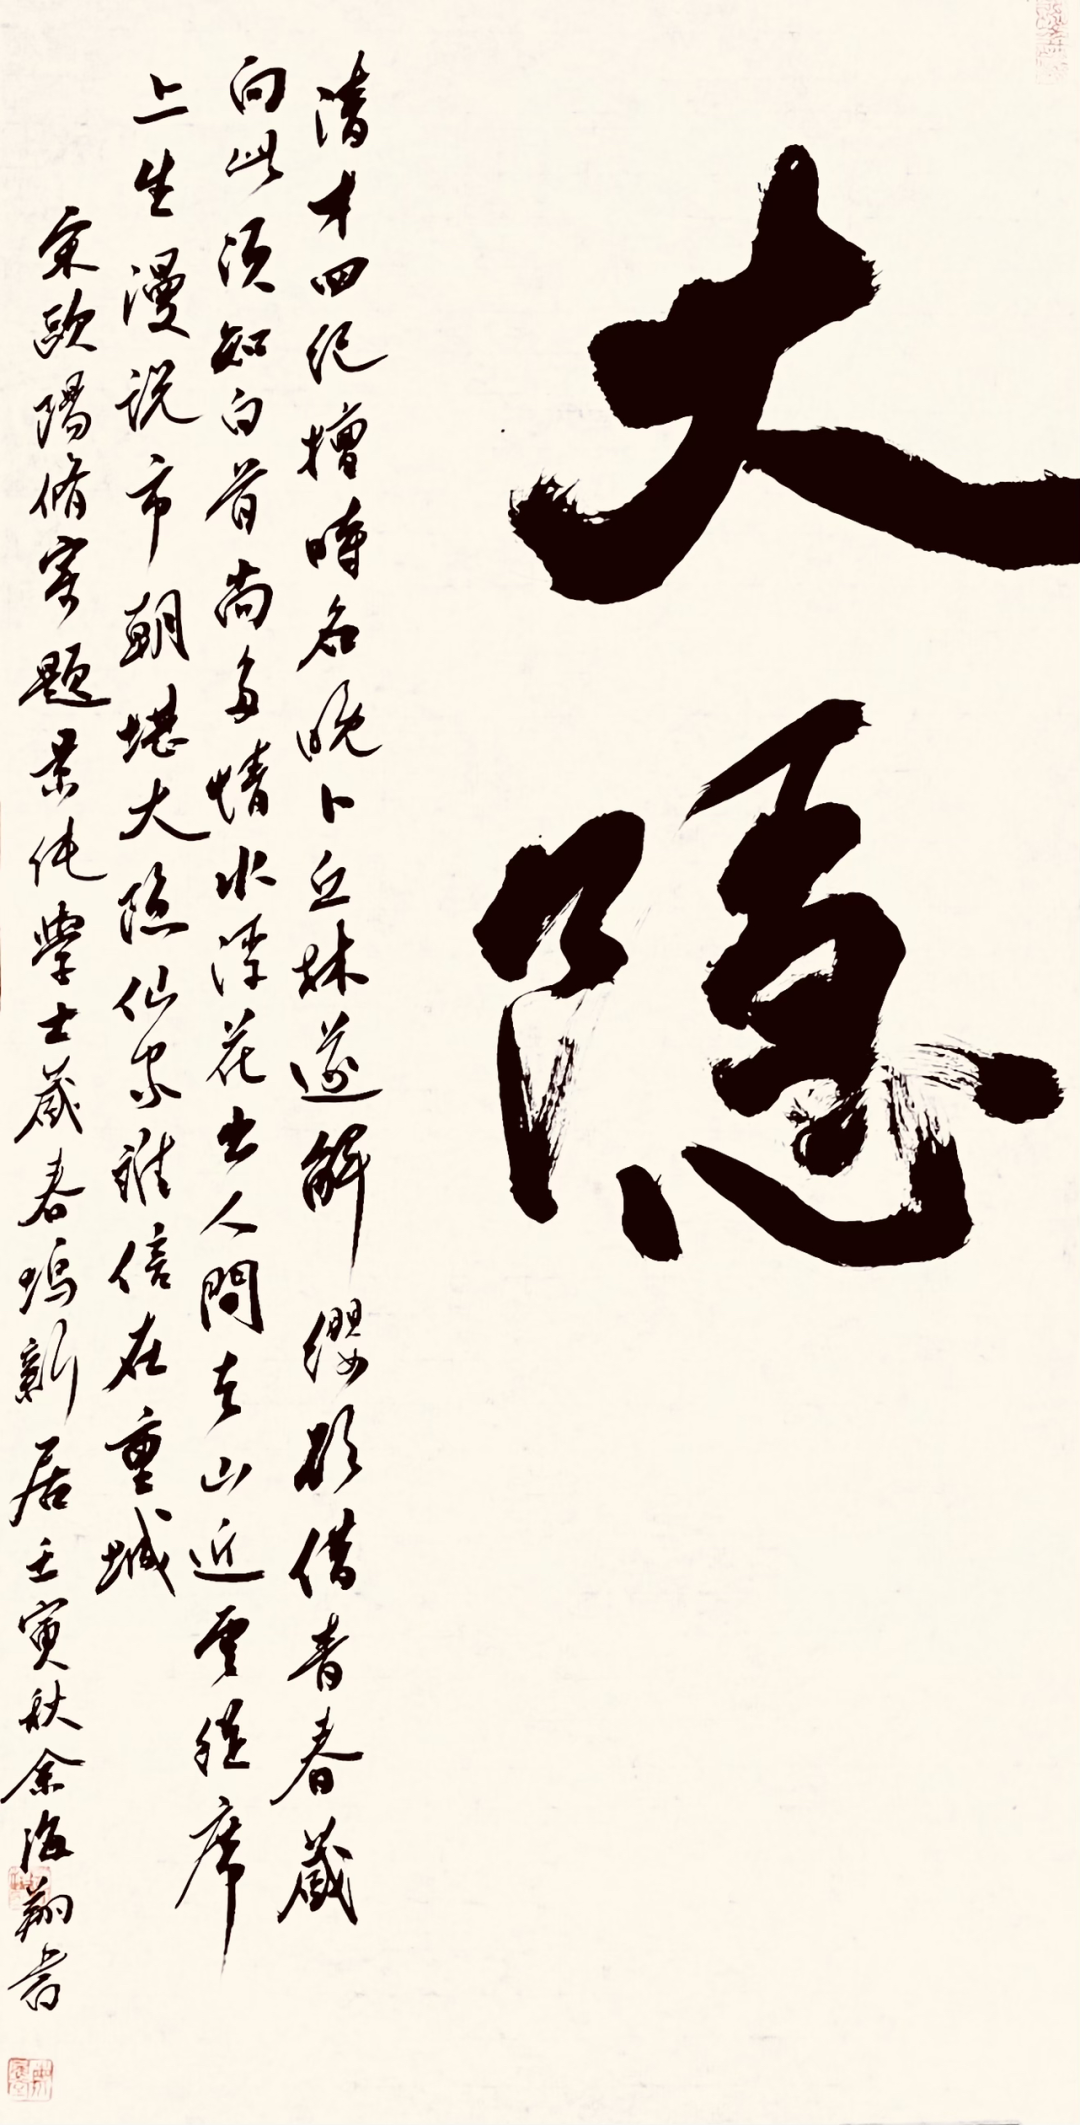 大隐
清才四纪擅時名晚卜丘林遂解缨欲借青春藏
向此须知白首尚多情水浮花出人間去山近雲從席
上生漫説市朝堪大隐仙家谁信在重城
宋歐陽脩寄題景纯學士藏春坞新居壬寅秋余海翔书